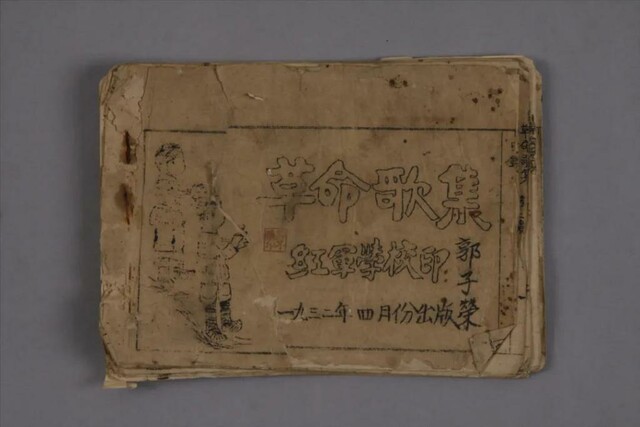 革命歌集
红軍學校印
一九三二年 四月份出版
郭子榮